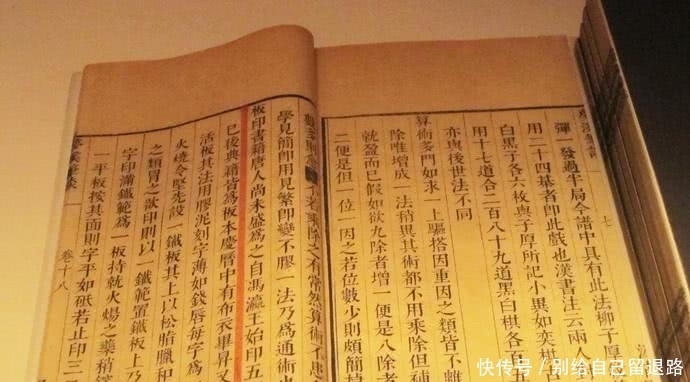 彈一發過半局今譜中具有此法柳子厚
用二十四棊者即此戲也漢書注云兩
白黑子各六枚與子厚所記小異如奕棋
用十七道合二百八十九道黑白棋各百五
亦與後世法不同
算術多門如求一上驅搭因重因之類皆不
除唯增成一法稍異其術都不用乘除但補
就盈而已假如欲九除者增一便是八除者
二便是但一位一因之若位數少則頗簡
不若乘除之有常然算術不患
學見簡即用見繁即變不膠一法乃爲通術
板印書籍唐人尚未盛爲之自馮瀛王始印五
已後典籍皆爲板本慶曆中有布衣畢昇又
活板其法用膠泥刻字薄如錢脣每字爲
火燒令堅先設一鐵板其上以松脂臘和
之類冒之欲印則以一鐵範置鐵板上
字印滿鐵範爲一板持就火煬之藥稍
一平板按其面則字平如砥若止印三
夢溪筆談 卷十八
快传号／别给自己留退路